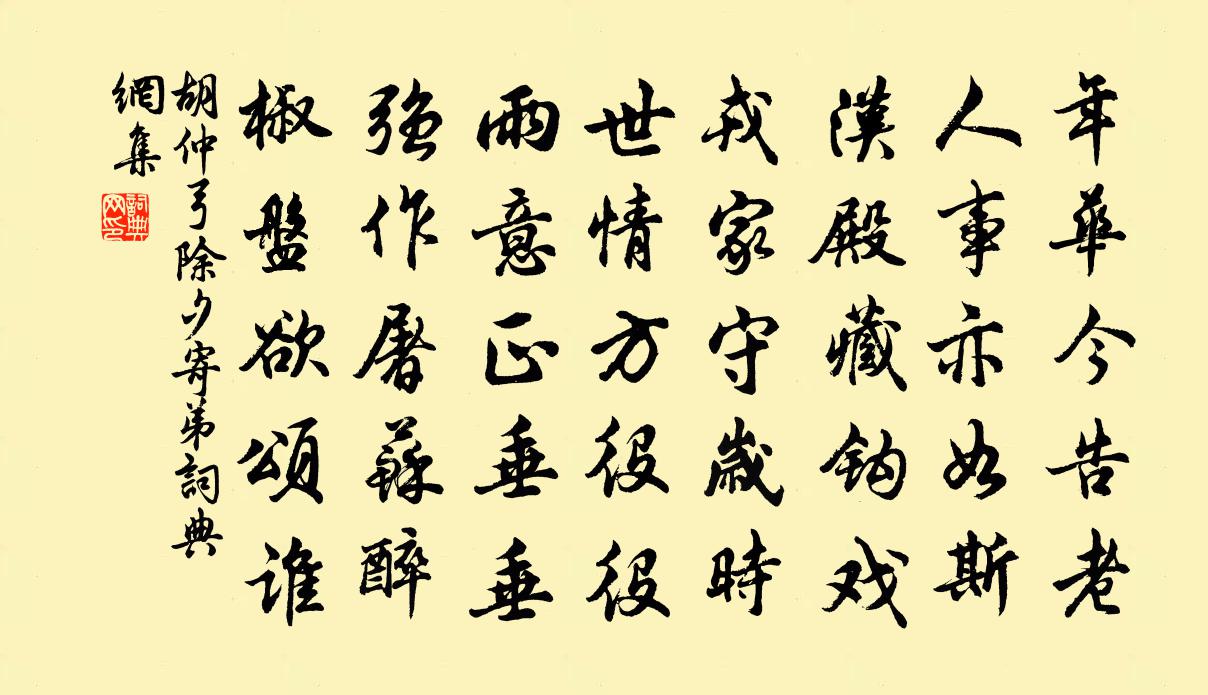 年華今告老
人事亦如斯
漢殿藏鈎戏
戎家守歲時
世情方役役
雨意正垂垂
强作屠蘇醉
椒盤欲頌誰
胡仲弓除夕寄弟詞典
網集
詞典网印